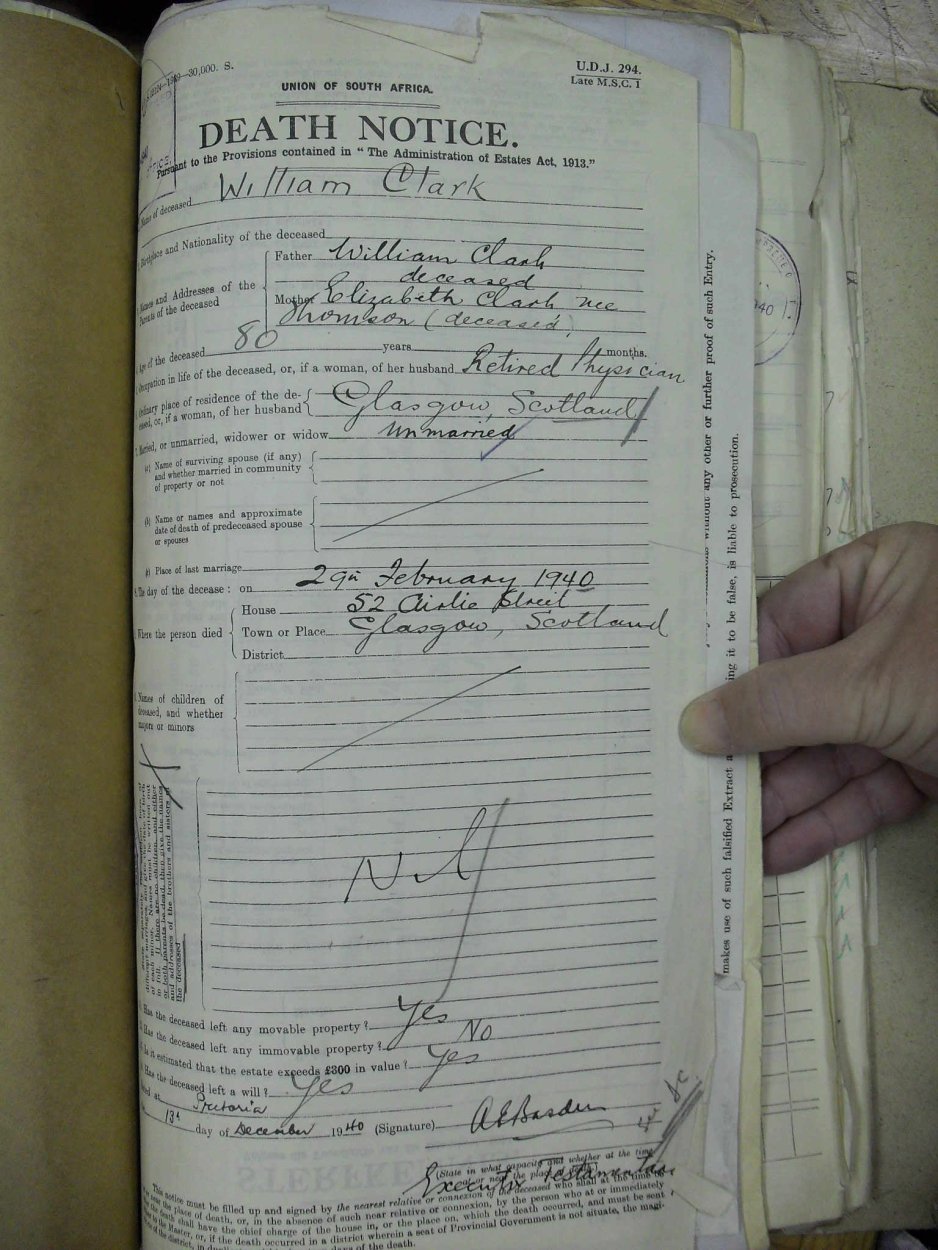 —30,000. S.
U.D.J. 294.
Late M.S.C. 1
UNION OF SOUTH AFRICA.
DEATH NOTICE.
Pursuant to the Provisions contained in "The Administration of Estates Act, 1913."
Name of deceased William Clark
Birthplace and Nationality of the deceased
Names and Addresses of the Parents of the deceased
Father William Clark
deceased
Mother Elizabeth Clark nee
Thomson (deceased)
Age of the deceased 80 years months.
Occupation in life of the deceased, or, if a woman, of her husband Retired Physician
Ordinary place of residence of the de-
ceased, or, if a woman, of her husband Glasgow, Scotland
Married, or unmarried, widower or widow unmarried
(a) Name of surviving spouse (if any)
and whether married in community
of property or not
(b) Name or names and approximate
date of death of predeceased spouse
or spouses
(c) Place of last marriage
The day of the decease: on 29th February 1940
Where the person died
House 52 Airlie Street
Town or Place Glasgow, Scotland
District
Names of children of
deceased, and whether
majors or minors
of each minor. Names must be written out
in full. If there are no children, and either
or both parents be dead, then give the names
and addresses of the brothers and sisters of
the deceased
Nil
Has the deceased left any movable property? Yes
Has the deceased left any immovable property? No
Is it estimated that the estate exceeds £300 in value? Yes
Has the deceased left a will? Yes
Dated at Pretoria
13th day of December 1940 (Signature) A E Basden
(State in what capacity and whether at the time
Executor Testamentary
This notice must be filled up and signed by the nearest relative or connexion of the deceased who shall at the time be
the place of death, or, in the absence of such near relative or connexion, by the person who at or immediately
the death shall have the chief charge of the house in, or the place on, which the death occurred, and must be sent
the Master, or, if the death occurred in a district wherein a seat of Provincial Government is not situate, the magi-
days of the death.
without any other or further proof of such Entry.
ing it to be false, is liable to prosecution.
makes use of such falsified Extract